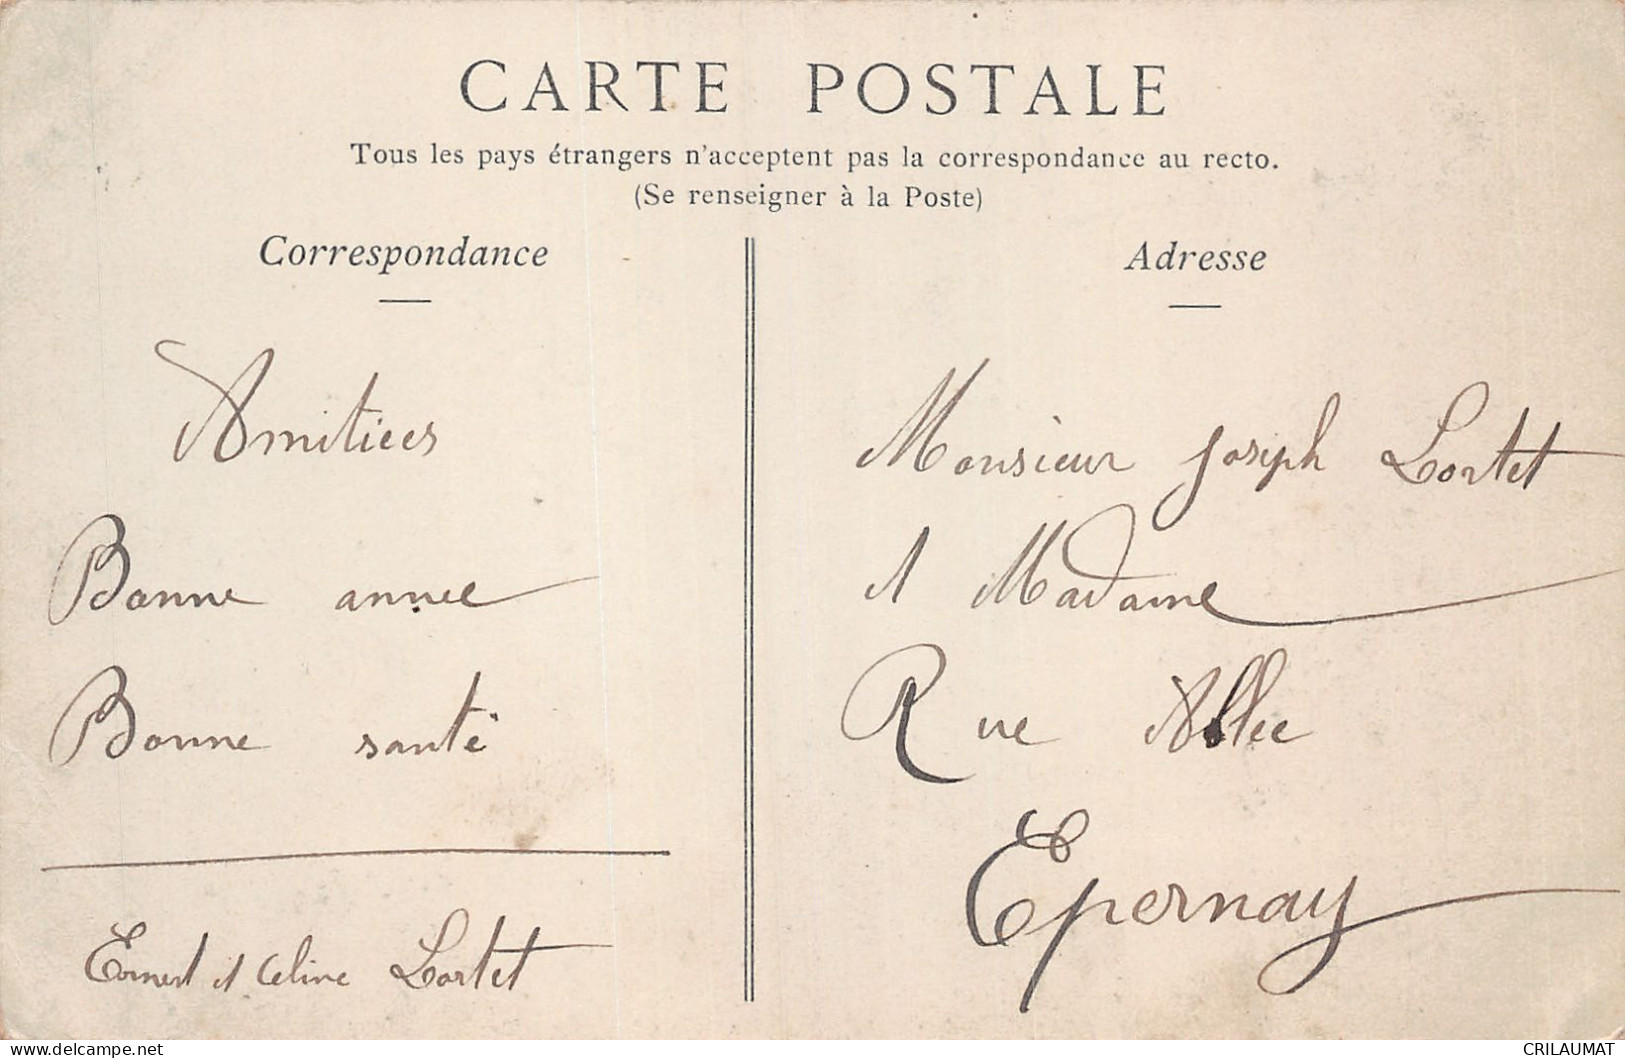 CARTE POSTALE
Tous les pays étrangers n'acceptent pas la correspondance au recto.
(Se renseigner à la Poste)
Correspondance
Amitiees
Bonne annee
Bonne santé
Ernest et Celine Lortet
Adresse
Monsieur Joseph Lortet
et Madame
Rue Allee
Epernay
www.delcampe.net
CRILAUMAT